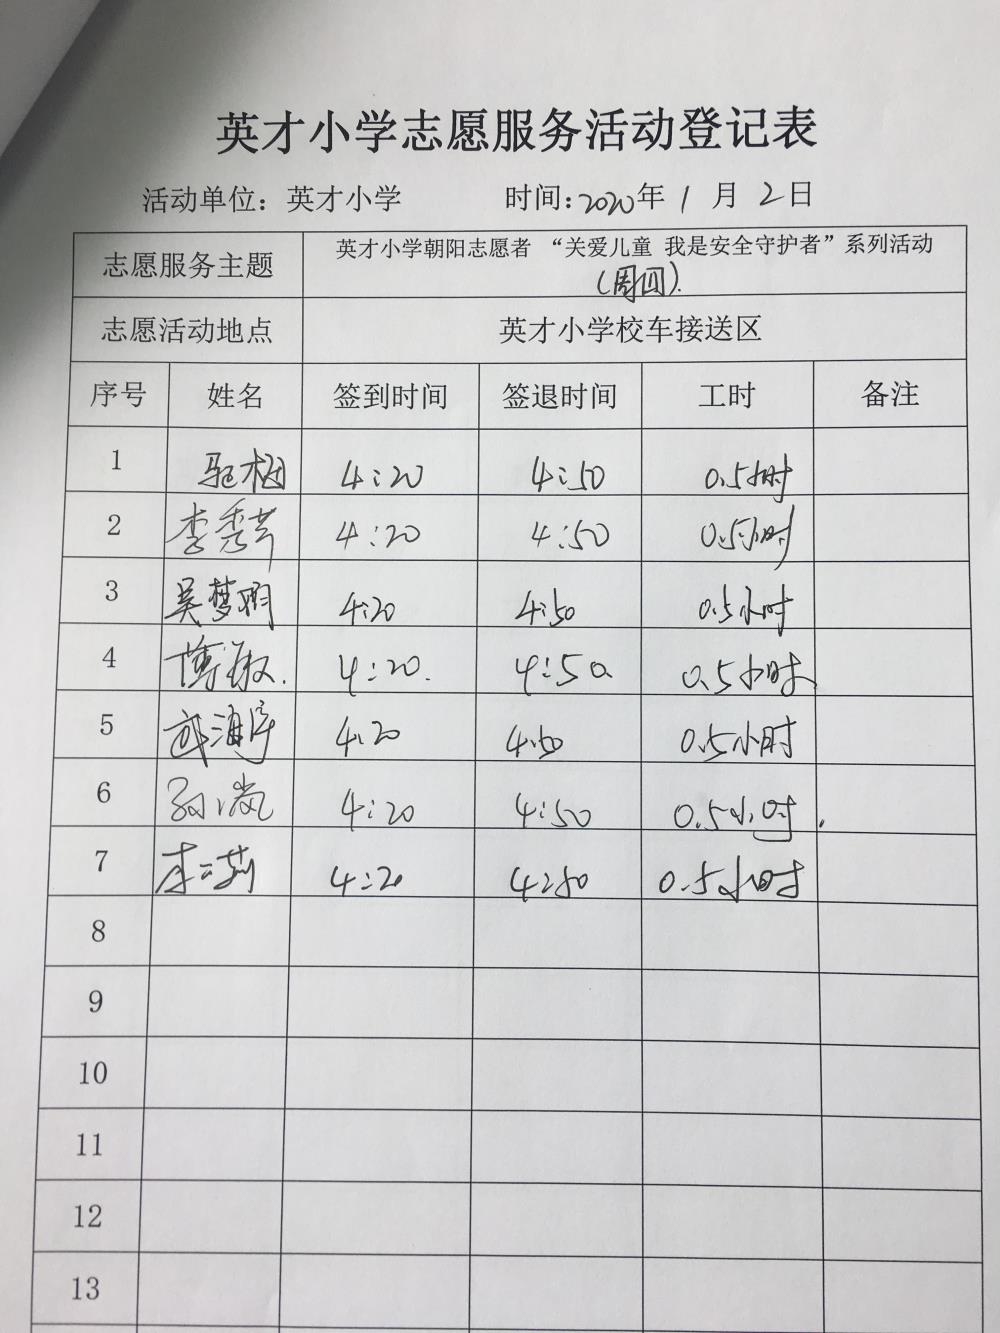 英才小学志愿服务活动登记表
活动单位：英才小学 时间：2020年1月2日
志愿服务主题 英才小学朝阳志愿者 “关爱儿童 我是安全守护者”系列活动
（周四）.
志愿活动地点 英才小学校车接送区
序号 姓名 签到时间 签退时间 工时 备注
1 4:20 4:50 0.5小时
2 李秀芹 4:20 4:50 0.5小时
3 吴梦明 4:20 4:50 0.5小时
4 4:20. 4:50. 0.5小时
5 4:20 4:50 0.5小时
6 孙岚 4:20 4:50 0.5小时.
7 李云莉 4:20 4:50 0.5小时
8
9
10
11
12
13